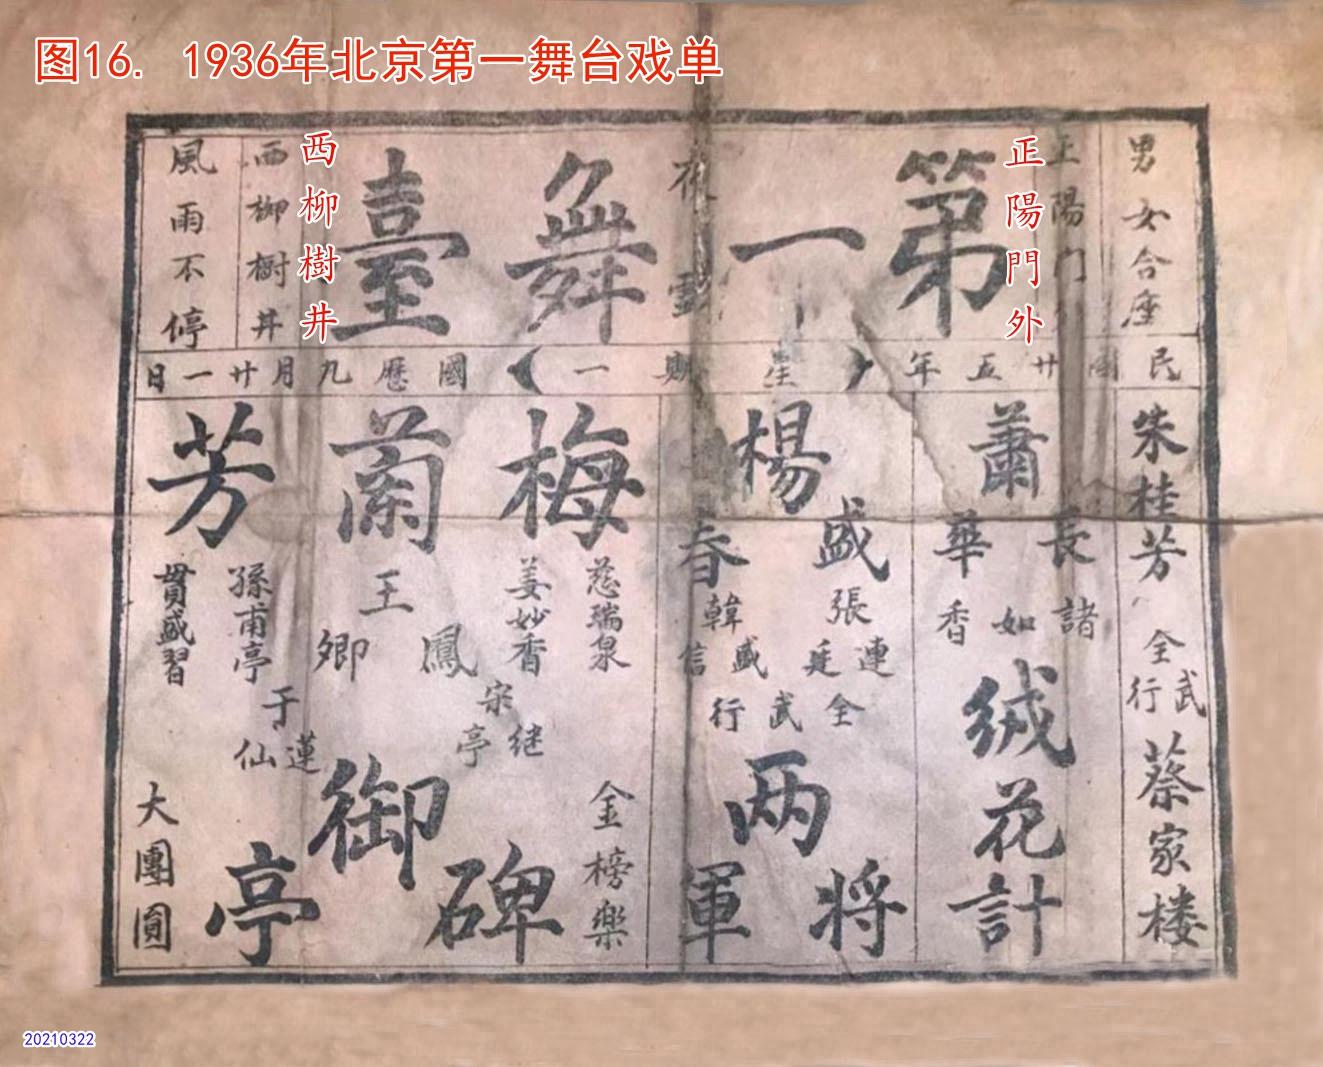 图16. 1936年北京第一舞台戏单
男女合座
正陽門外
正陽門
第一舞臺
夜
西柳樹井
西柳樹井
風雨不停
民國廿五年
星期一
國曆九月廿一日
朱桂芳
全武行
蔡家楼
蕭長華
諸如香
絨花計
楊盛春
張連廷
韓盛信
全武行
两将軍
梅蘭芳
慈瑞泉
姜妙香
王鳳卿
孫甫亭
貫盛習
宋继亭
于蓮仙
金榜樂
御碑亭
大團圓
20210322